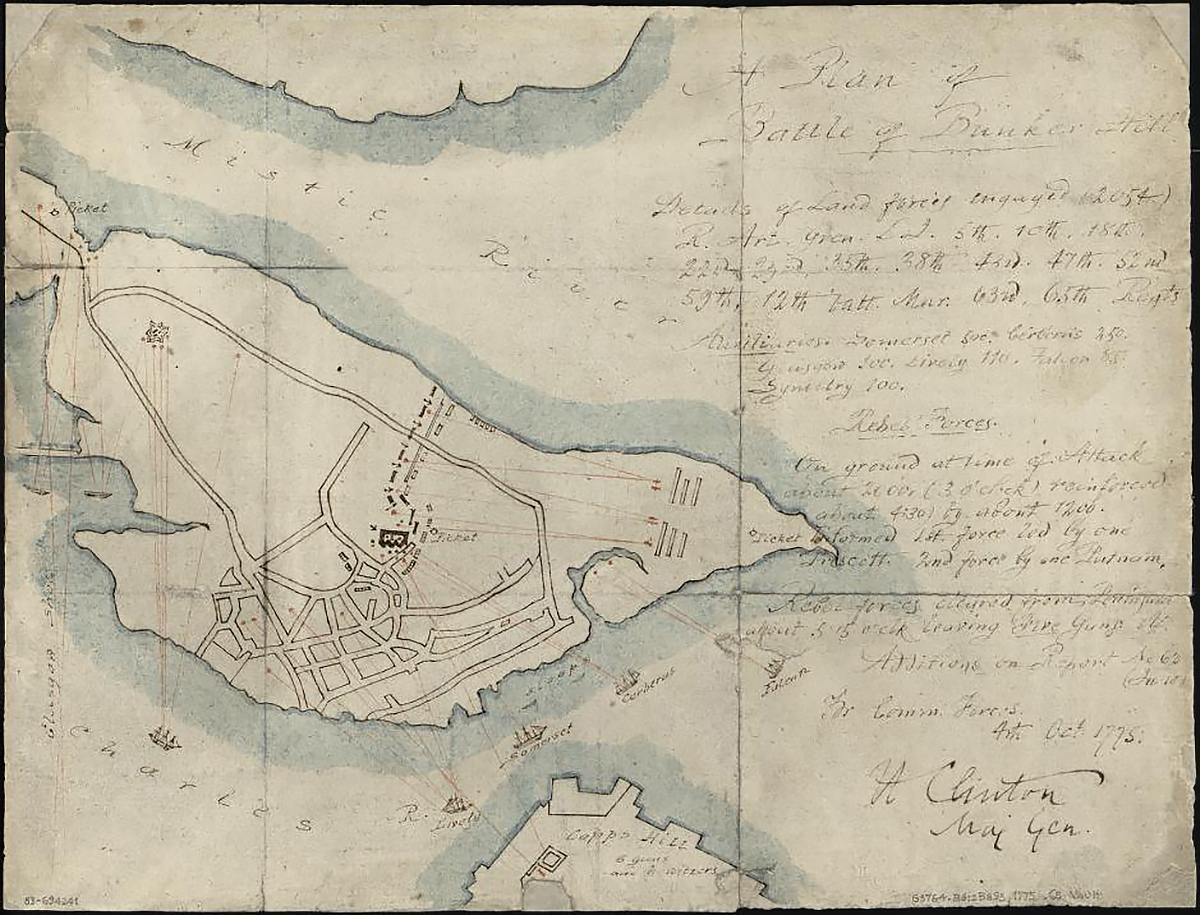 A Plan of
Battle of Bunker Hill
Details of Land forces engaged (2054)
R. Art. Gren. L.I. 5th. 10th. 18th.
22nd. 23rd. 35th. 38th 43rd. 47th. 52nd
59th. 12th Batt. Mar. 63rd. 65th Regts
Auxiliaries. Somerset 300. Cerberus 250.
Glasgow 200. Lively 110. Falcon
Symetry 100.
Rebel Forces.
On ground at time of Attack
about (3 o'clk) reinforced
about 4.30) by about 1200.
Informed 1st. force led by one
Prescott. 2nd force by one Putnam.
Rebel forces cleared from Peninsula
about 5 o'clk leaving Five Guns
Additions on Report No 63
For Comm. Forces.
4th Oct 1775.
H Clinton
Maj Gen.
Mistic
River
Picket
Picket
Picket
Glasgow sloop
Charles R.
sloop
Cerberus
Falcon
Somerset
Lively
Copps Hill
6 guns
and witzers
83-694241